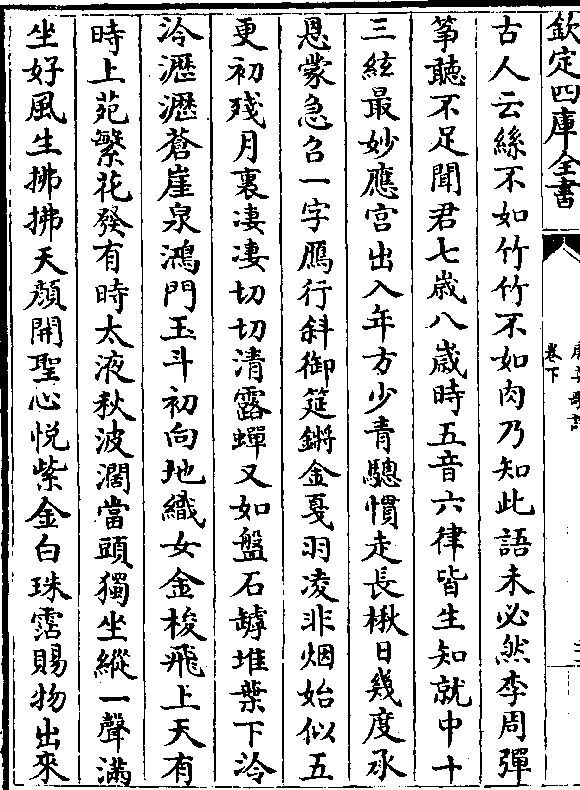 欽定四庫全書
卷下
古人云絲不如竹竹不如肉乃知此語未必然李周彈
筝聽不足聞君七歲八歲時五音六律皆生知就中十
三絃最妙應宫出入年方少青驄慣走長楸日幾度承
恩蒙急召一字鴈行斜御筵鏘金戛羽凌非烟始似五
更初殘月裏凄凄切切清露蟬又如盤石罅堆葉下泠
泠瀝瀝蒼崖泉鴻門玉斗初向地織女金梭飛上天有
時上苑繁花發有時太液秋波濶當頭獨坐縱一聲滿
坐好風生拂拂天顔開聖心悦紫金白珠霑賜物出來